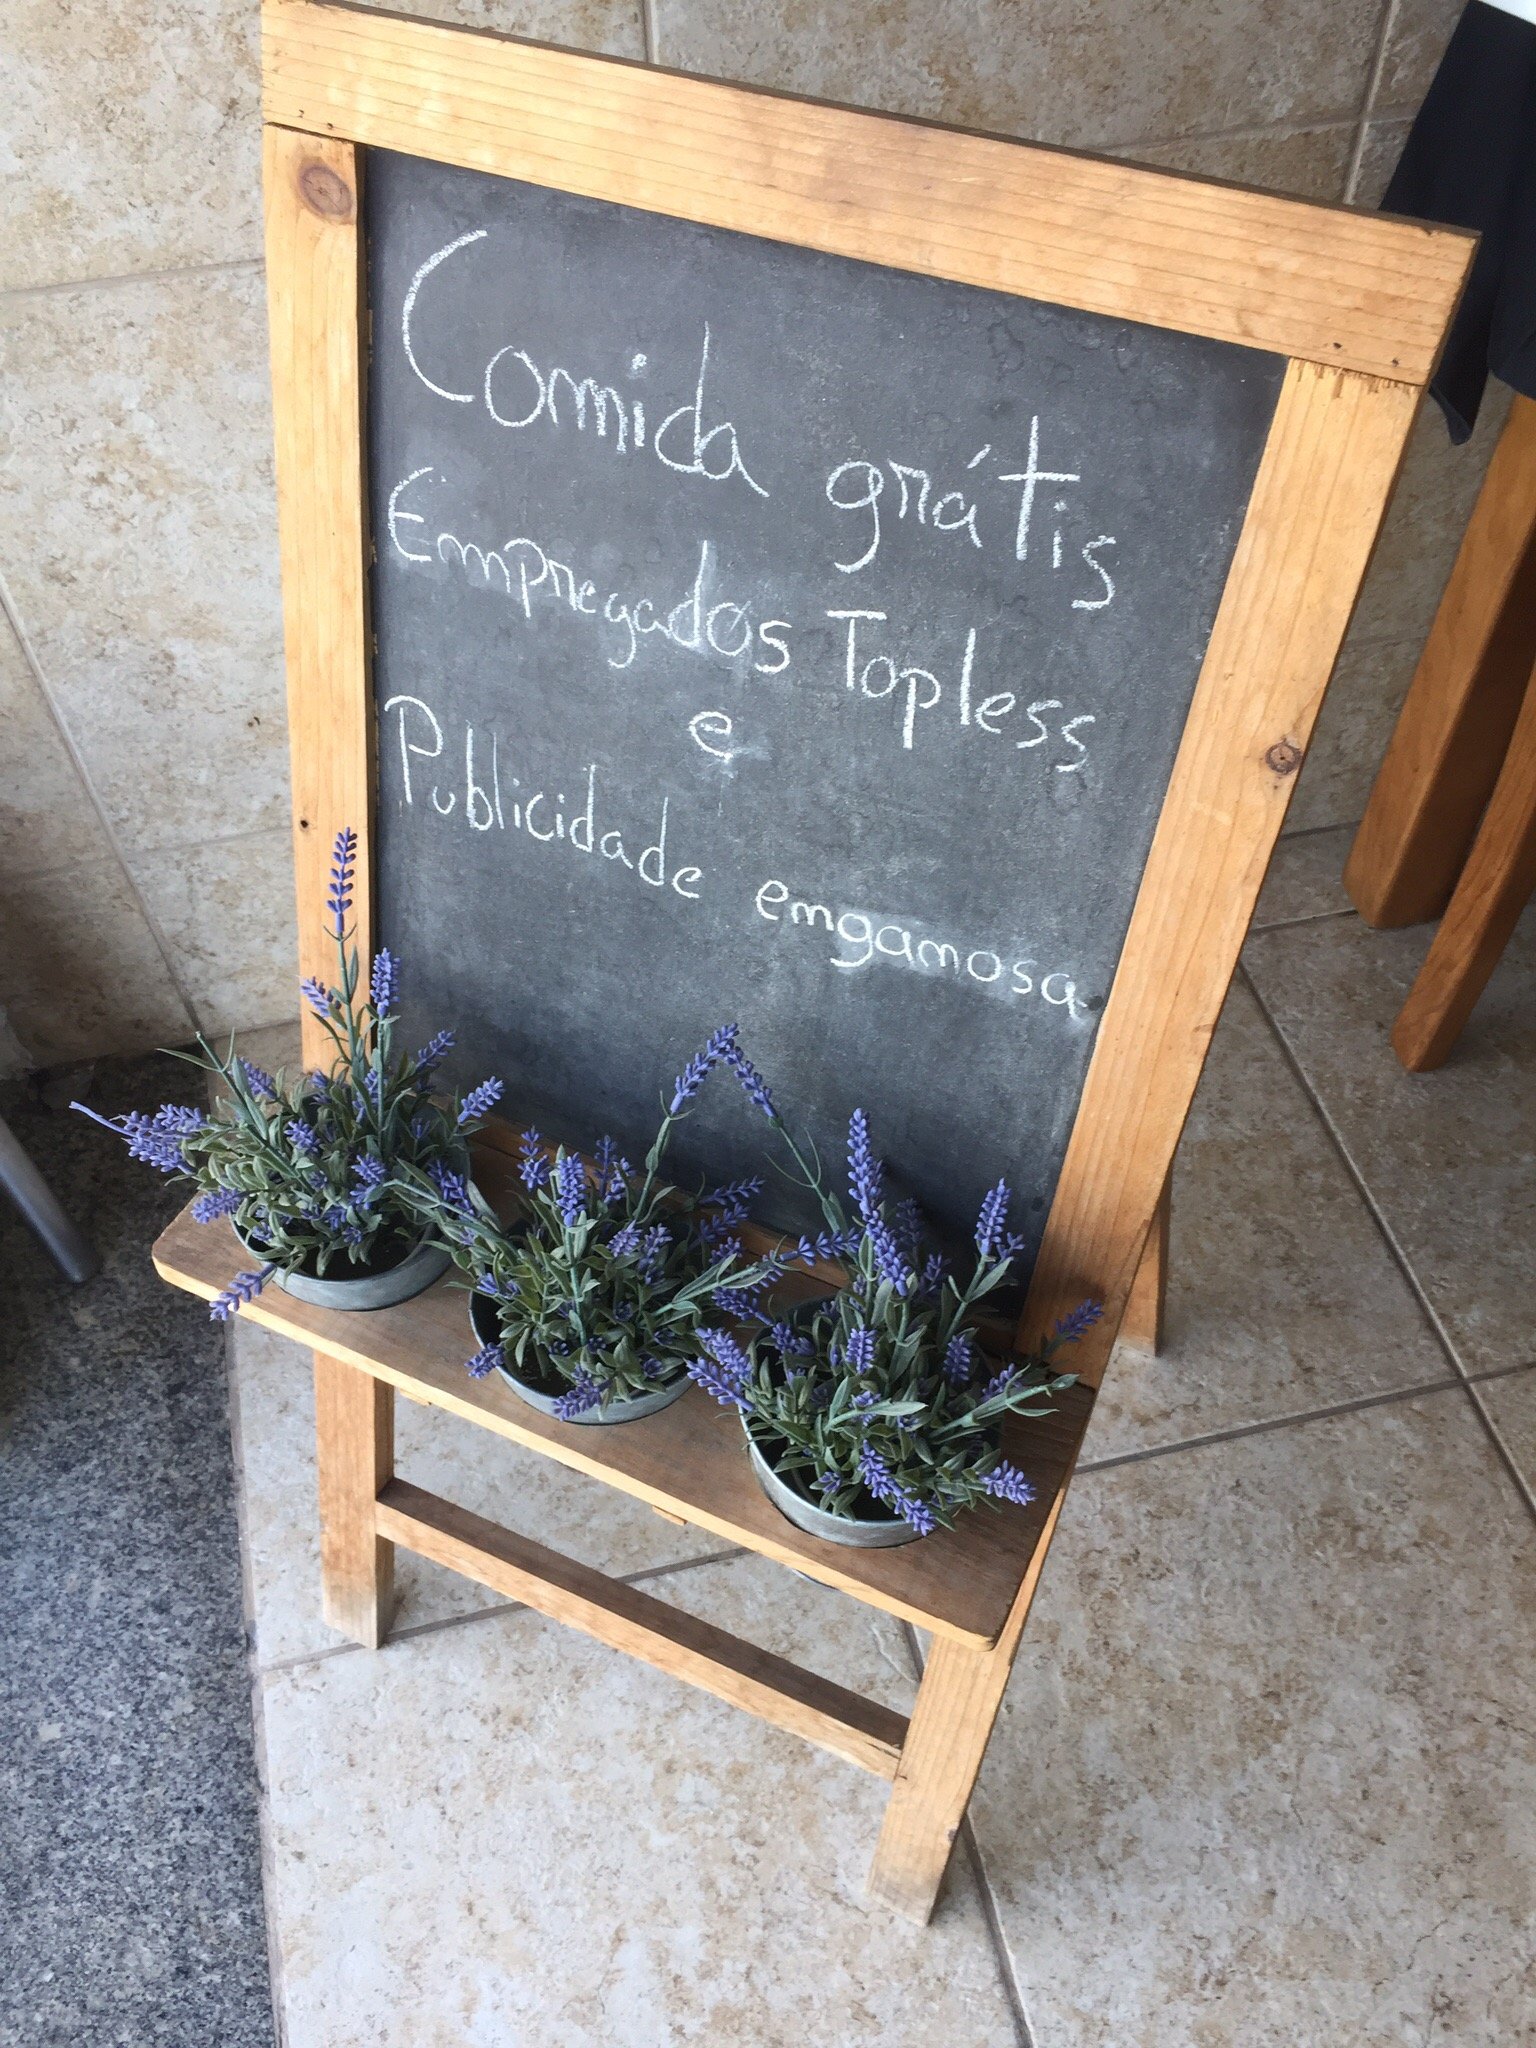 Comida grátis
Empregados Topless
e
Publicidade enganosa